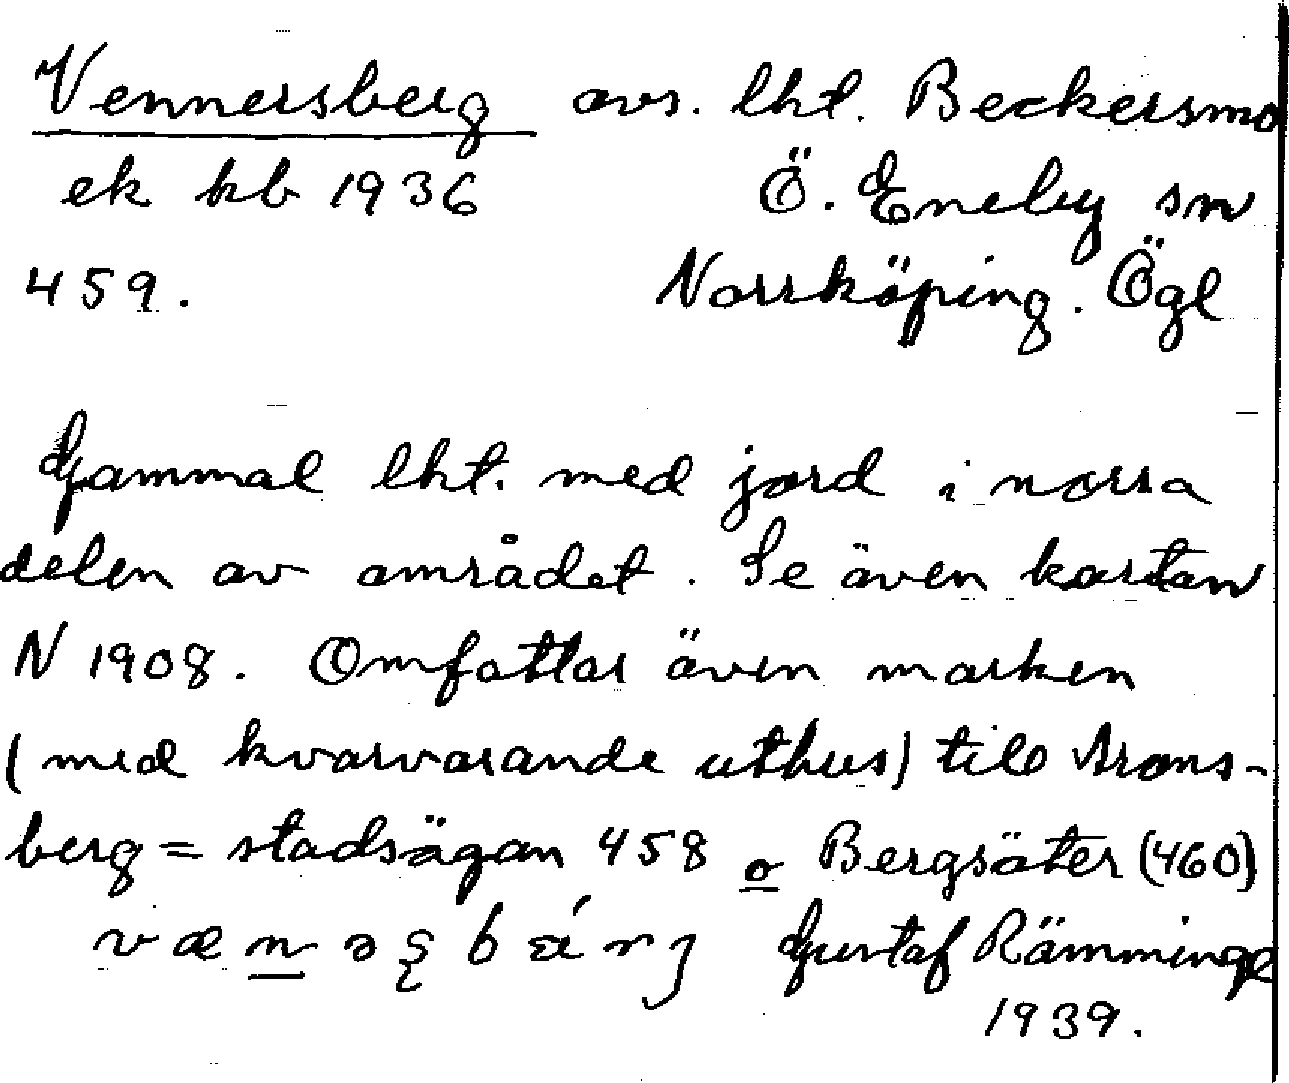 Vennersberg avs. lht. Beckersmo
ek kb 1936 Ö. Eneby sn
459. Norrköping. Ögl
Gammal lht. med jord i norra
delen av området. Se även kartan
N 1908. Omfattar även marken
(med kvarvarande uthus) till
berg = stadsägan 458 o Bergsäter (460)
Gustaf Rämminge
1939.